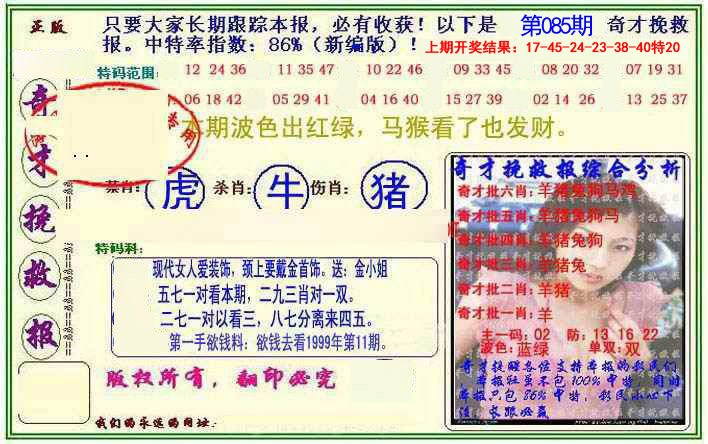 正版
只要大家长期跟踪本报，必有收获！以下是 第085期 奇才挽救
报。中特率指数：86%（新编版）！上期开奖结果：17-45-24-23-38-40特20
特码范围：
12 24 36 11 35 47 10 22 46 09 33 45 08 20 32 07 19 31
06 18 42 05 29 41 04 16 40 15 27 39 02 14 26 13 25 37
本期波色出红绿，马猴看了也发财。
奇才挽救报
禁肖：虎 杀肖：牛 伤肖：猪
特码科：
现代女人爱装饰，颈上要戴金首饰。送：金小姐
五七一对看本期，二九三肖对一双。
二七一对以看三，八七分离来四五。
第一手欲钱料：欲钱去看1999年第11期。
版权所有，翻印必究
我们的永远的网址：
奇才挽救报综合分析
奇才批六肖：羊猪兔狗马鸡
奇才批五肖：羊猪兔狗马
奇才批四肖：羊猪兔狗
奇才批三肖：羊猪兔
奇才批二肖：羊猪
奇才批一肖：羊
主一码：02 防：13 16 22
波色：蓝绿 单双：双
奇才提醒各位支持本报的彩民们
本报虽不包100%中特，但对
本报只包86%中特，彩民小心下
注，长跟必赢